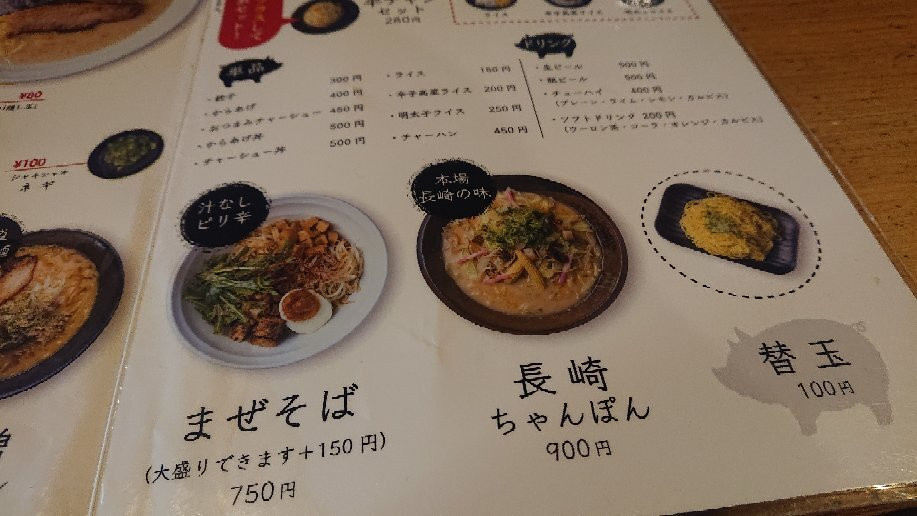 セット
280円
ライス
¥100
シャキシャキ
ネギ
単品
・餃子 300円
・からあげ 400円
・おつまみチャーシュー 450円
・からあげ丼 500円
・チャーシュー丼 500円
・ライス 150円
・辛子高菜ライス 200円
・明太子ライス 250円
・チャーハン 450円
ドリンク
・生ビール 500円
・瓶ビール 500円
・チューハイ 400円
(プレーン・ライム・レモン・カルピス)
・ソフトドリンク 200円
(ウーロン茶・コーラ・オレンジ・カルピス)
汁なし
ピリ辛
まぜそば
(大盛りできます+150円)
750円
本場
長崎の味
長崎
ちゃんぽん
900円
替玉
100円